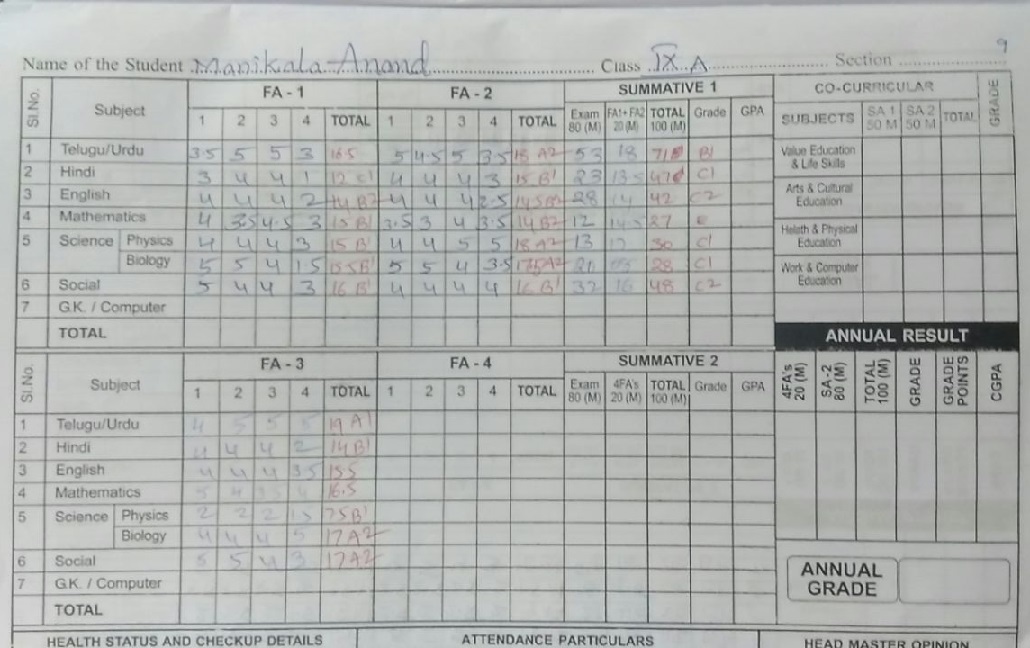 9
Name of the Student Manikala Anand Class IX A Section
Sl.No. Subject FA - 1 FA - 2 SUMMATIVE 1 CO-CURRICULAR GRADE
1 2 3 4 TOTAL 1 2 3 4 TOTAL Exam 80 (M) FA1+FA2 20 (M) TOTAL 100 (M) Grade GPA SUBJECTS SA 1 50 M SA 2 50 M TOTAL
1 Telugu/Urdu 3.5 5 5 3 16.5 5 4.5 5 3.5 18 A2 53 18 71 B1 Value Education & Life Skills
2 Hindi 3 4 4 1 12 C1 4 4 4 3 15 B1 23 13.5 47 C1
3 English 4 4 4 2 14 B2 4 4 4 2.5 14.5 B2 28 14 42 C2 Arts & Cultural Education
4 Mathematics 4 3.5 4.5 3 15 B1 3.5 3 4 3.5 14 B2 12 14.5 27 e
5 Science Physics 4 4 4 3 15 B1 4 4 5 5 18 A2 13 17 30 C1 Helath & Physical Education
Biology 5 5 4 1.5 15.5 B1 5 5 4 3.5 17.5 A2 28 C1
6 Social 5 4 4 3 16 B1 4 4 4 4 16 B1 32 16 48 C2 Work & Computer Education
7 G.K. / Computer
TOTAL
ANNUAL RESULT
Sl.No. Subject FA - 3 FA - 4 SUMMATIVE 2
1 2 3 4 TOTAL 1 2 3 4 TOTAL Exam 80 (M) 4FA's 20 (M) TOTAL 100 (M) Grade GPA 4FA's 20 (M) SA-2 80 (M) TOTAL 100 (M) GRADE GRADE POINTS CGPA
1 Telugu/Urdu 4 5 5 5 19 A1
2 Hindi 4 4 4 2 14 B1
3 English 4 4 4 3.5 15.5
4 Mathematics 5 4 3.5 4 16.5
5 Science Physics 2 2 2 1.5 7.5 B1
Biology 4 4 4 5 17 A2
6 Social 5 5 4 3 17 A2
7 G.K. / Computer
TOTAL
ANNUAL GRADE
HEALTH STATUS AND CHECKUP DETAILS ATTENDANCE PARTICULARS HEAD MASTER OPINION